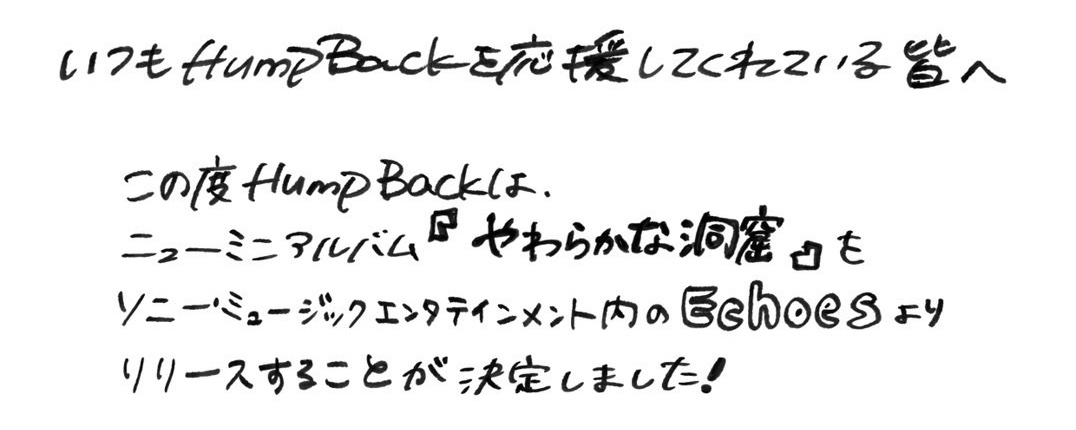 いつもHump Backを応援してくれている皆へ
この度Hump Backは、
ニューミニアルバム『やわらかな洞窟』を
ソニー・ミュージックエンタテインメント内のEchoesより
リリースすることが決定しました!